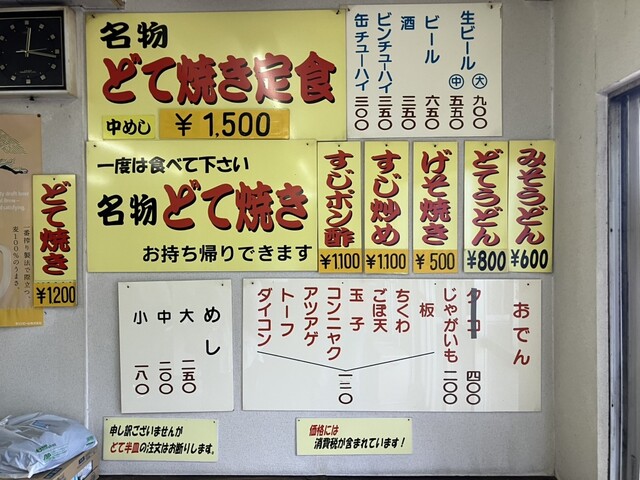 名物
どて焼き定食
中めし ¥1,500
生ビール 大 九〇〇
中 五五〇
ビール 六五〇
酒 三五〇
ビンチューハイ 三五〇
缶チューハイ 三〇〇
一度は食べて下さい
名物 どて焼き
お持ち帰りできます
すじポン酢 ¥1100
すじ炒め ¥1,100
げそ焼き ¥500
どてうどん ¥800
みそうどん ¥600
どて焼き ¥1200
一番搾り製法で際立つ、
麦100%のうまさ。
おでん
タコ 四〇〇
じゃがいも 二〇〇
板
ちくわ
ごぼ天
玉子
コンニャク
アツアゲ
トーフ
ダイコン
一二〇
めし
大 二五〇
中 二〇〇
小 一八〇
申し訳ございませんが
どて半皿の注文はお断りします。
価格には
消費税が含まれています!